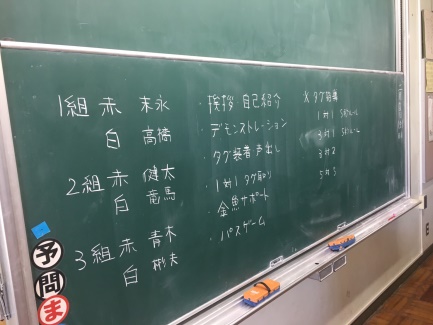 1組 赤 末永
白 高橋
2組 赤 健太
白 竜馬
3組 赤 青木
白 彬夫
・挨拶 自己紹介
・デモンストレーション
・タグ装着 声出し
・1対1 タグ取り
金魚サポート
・パスゲーム
1対1
3対1
3対2
5対3
予
問
ま